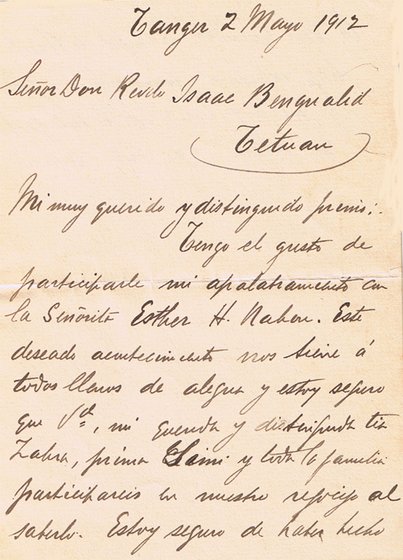 Tanger 2 Mayo 1912
Señor Don Revdo Isaac Bengualid
Tetuan
Mi muy querido y distinguido primo:
Tengo el gusto de
participarle mi apalabramiento con
la Señorita Esther H. Nahon. Este
deseado acontecimiento nos tiene á
todos llenos de alegria y estoy seguro
que Vd., mi querida y distinguida tia
Zahra, prima y toda la familia
participareis en nuestro regocijo al
saberlo. Estoy seguro de haber hecho